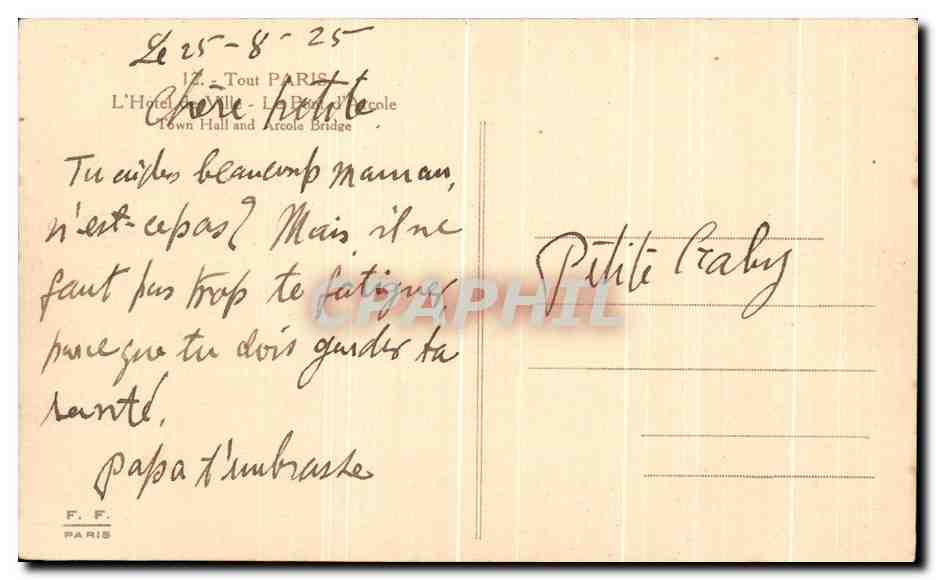 Le 25-8-25
12. - Tout PARIS
L'Hôtel de Ville - Le Pont d'Arcole
Town Hall and Arcole Bridge
Chère petite
Tu aides beaucoup maman,
n'est-ce pas? Mais il ne
faut pas trop te fatiguer,
parce que tu dois garder ta
santé.
papa t'embrasse
F. F.
PARIS
Petite Gaby
CPAPHIL